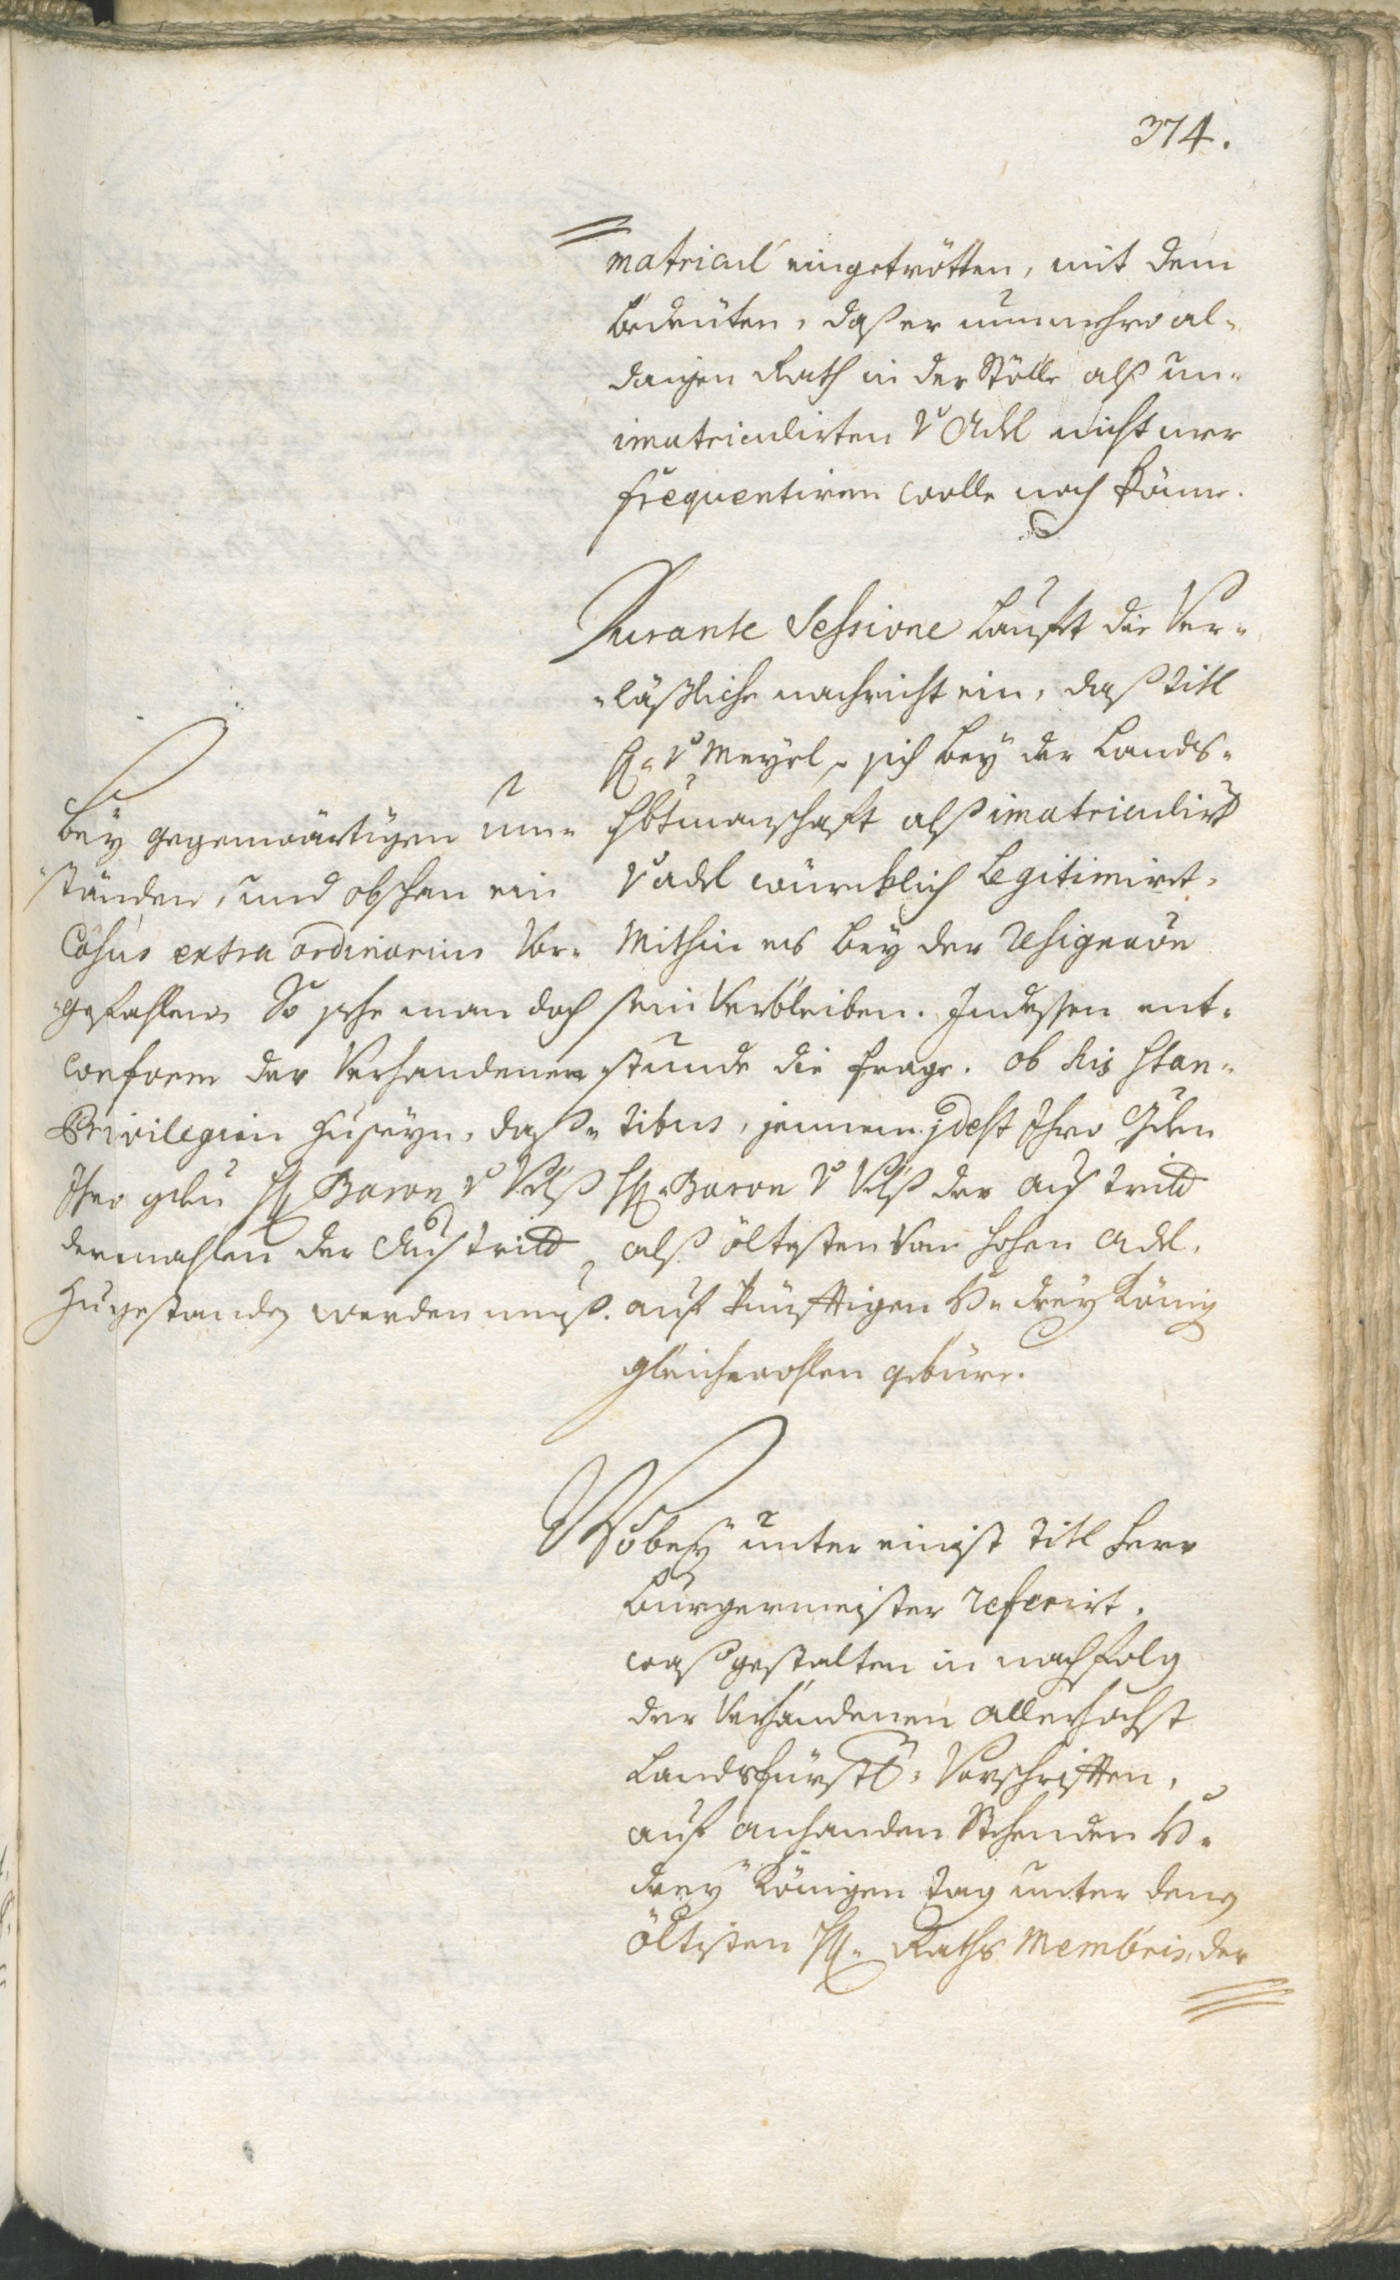 374.
matricul eingetrötten, mit dem
bedeuten, daß er nunmehro al-
daigen Rath in der Stölle alß un-
imatriculirten v Adl nicht mer
frequentiren wolle noch könne.
Durante Sessione laufft die Ver-
läßliche nachricht ein, daß titl
H: v Meyrl sich bey der Lands-
Hbtmanschafft alß imatriculirt
v adl würcklich Legitimirt,
Mithin es bey der resignaõn
sein Verbleiben. Indessen ent-
stunde die frage. ob his stan-
tibus, jennem idest Ihro Gden
H: Baron v Velß der austritt
alß öltesten von hohen Adl,
auf künfftigen H: drey König
gleichwohlen gebüre.
Bey gegenwärtigen um-
ständen, und obschon ein
Casus extra ordinarius Vor-
gefahlen, So sehe man doch
conform der Verhandenen
Privilegien zuseyn, daß
Ihro gden H: Baron v Velß
dermahlen der Austritt
zugestanden werden muß.
Wobey unter einist titl Herr
Burgermeister referirt,
waßgestalten in nachfolg
der Verhandenen allerhöchst
Landsfürstl: Vorschrifften,
auf anhanden Stehenden H:
drey Königen tag unter denen
öltisten H: Raths Membris, der